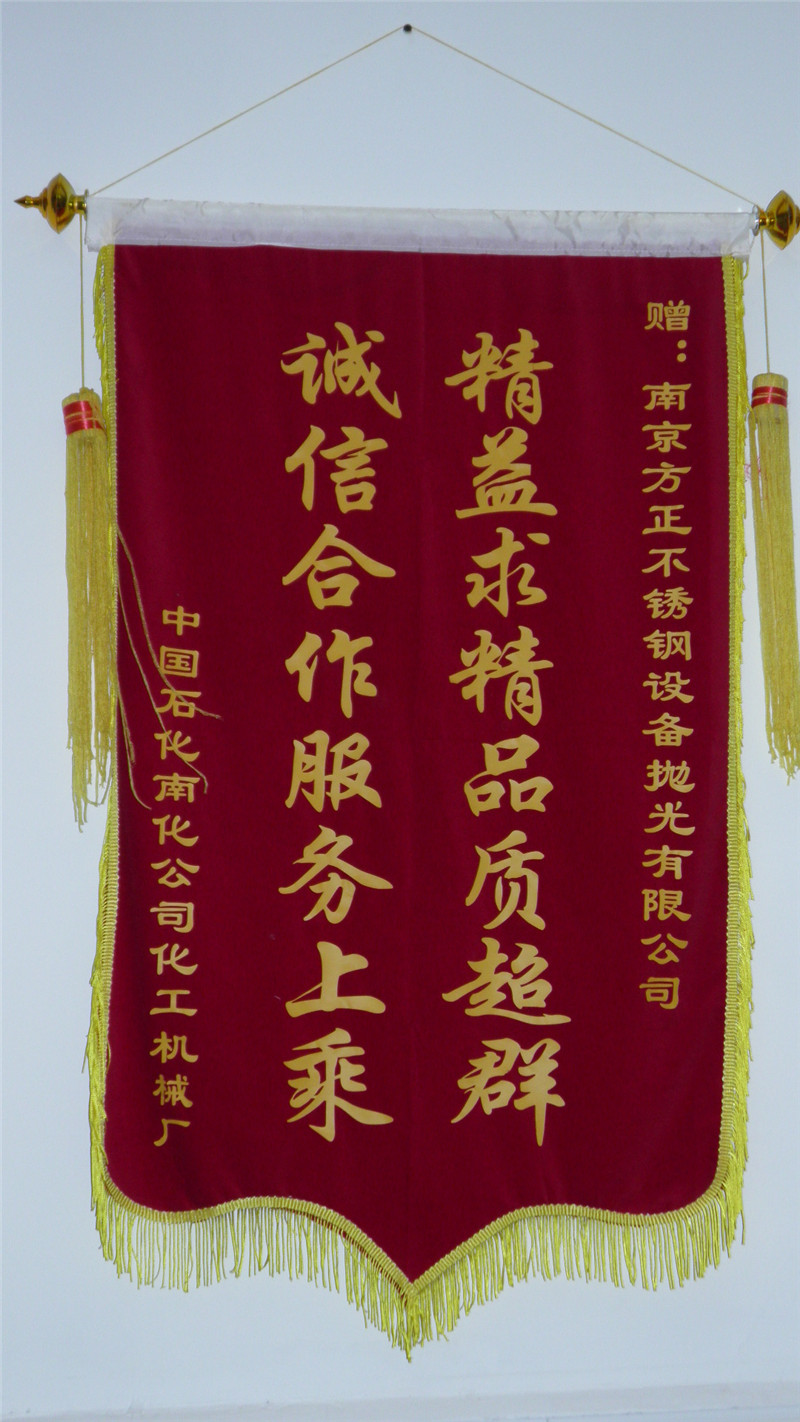 赠：南京方正不锈钢设备抛光有限公司
精益求精品质超群
诚信合作服务上乘
中国石化南化公司化工机械厂